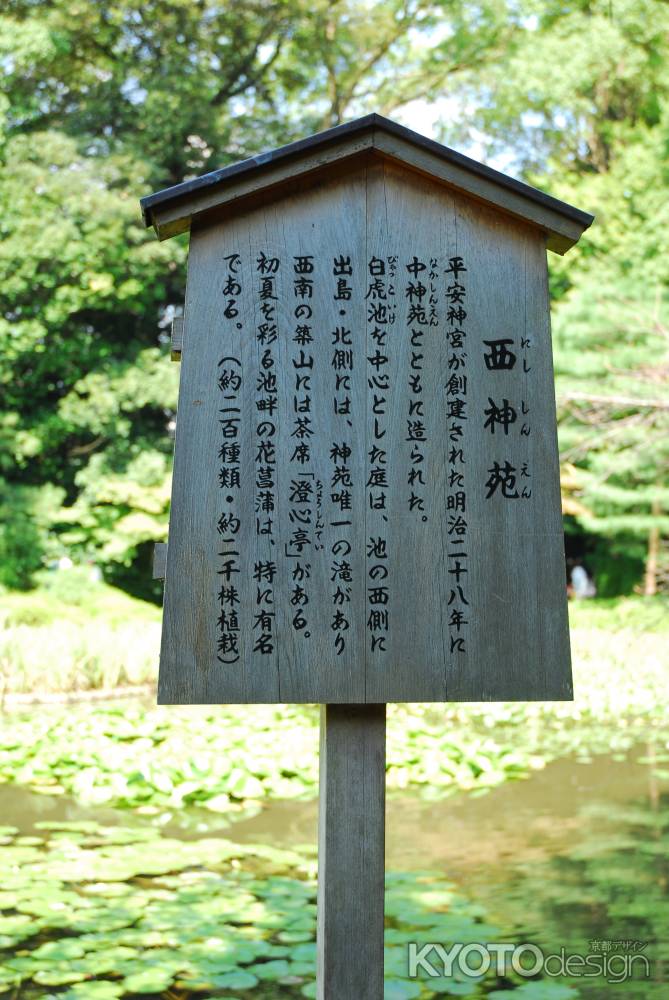 西神苑
にししんえん
平安神宮が創建された明治二十八年に
中神苑とともに造られた。
なかしんえん
白虎池を中心とした庭は、池の西側に
びゃっこいけ
出島・北側には、神苑唯一の滝があり
西南の築山には茶席「澄心亭」がある。
ちょうしんてい
初夏を彩る池畔の花菖蒲は、特に有名
である。（約二百種類・約二千株植栽）
KYOTOdesign
京都デザイン